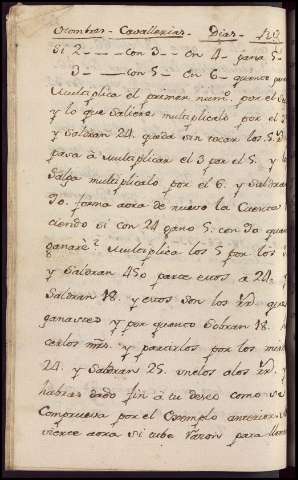 Ombres - Cavallerias - Dias -
Si 2 - con 3 - en 4 - gana 5 -
3 - con 5 - en 6 - quanto
Multiplica el primer num.º por el
y lo que saliere multiplicalo por el
y Saldran 24. queda sin tocar los 5.
pasa à Multiplicar el 3 par el 5. y lo
Salga multiplicalo por el 6. y Saldran
90. forma aora de nuevo la Cuenta
ciendo si con 24 gano 5. con 90 quan
ganare? Multiplica los 5 por los
y Saldran 450 parte estos a 24.
Saldran 18. y estos son los
ganastes y por quanto Sobran 18.
cerlos mrs. y partirlos por los mism
24. y Saldran 25. unelos alos
habras dado fin à tu deseo como se
Comprueva por el Exemplo anterior
vierte aora si tubo razon para